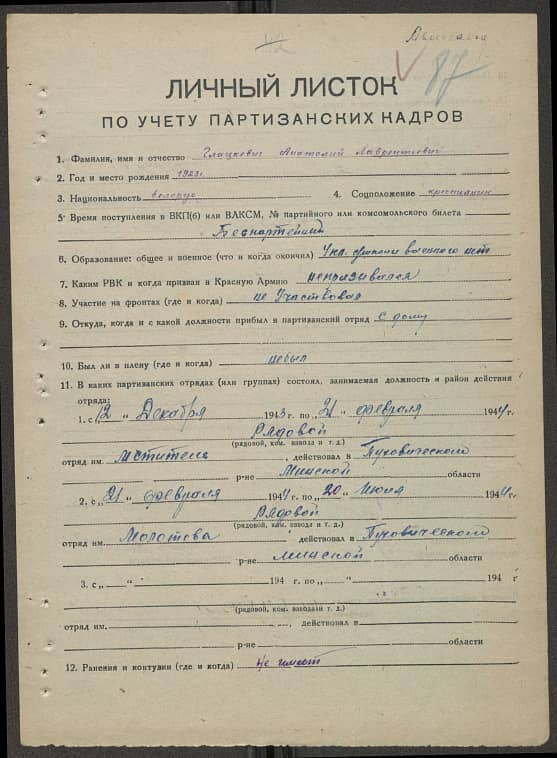 42
87
ЛИЧНЫЙ ЛИСТОК
ПО УЧЕТУ ПАРТИЗАНСКИХ КАДРОВ
1. Фамилия, имя и отчество Глацкович Анатолий Лаврентьевич
2. Год и место рождения 1923г.
3. Национальность белорус 4. Соцположение крестьянин
5. Время поступления в ВКП(б) или ВЛКСМ, № партийного или комсомольского билета
Беспартейний
6. Образование: общее и военное (что и когда окончил) 4 кл. военного нет
7. Каким РВК и когда призван в Красную Армию непризывался
8. Участие на фронтах (где и когда) не участвовал
9. Откуда, когда и с какой должности прибыл в партизанский отряд с дому
10. Был ли в плену (где и когда) небыл
11. В каких партизанских отрядах (или группах) состоял, занимаемая должность и район действия
отряда:
1. с „12" Декабря 1943 г. по „21" февраля 1944 г.
Рядовой
(рядовой, ком. взвода и т. д.)
отряд им. Мститель, действовал в Пуховического
р-не Минской области
2. с „21" февраля 1944 г. по „20" июня 1944 г.
Рядовой
(рядовой, ком. взвода и т. д.)
отряд им. Молотова действовал в Пуховического
р-не минской области
3. с „ " 194 г. по „ " 194 г
(рядовой, ком. взвода и т. д.)
отряд им. , действовал в
р-не области
12. Ранения и контузии (где и когда) не имеет